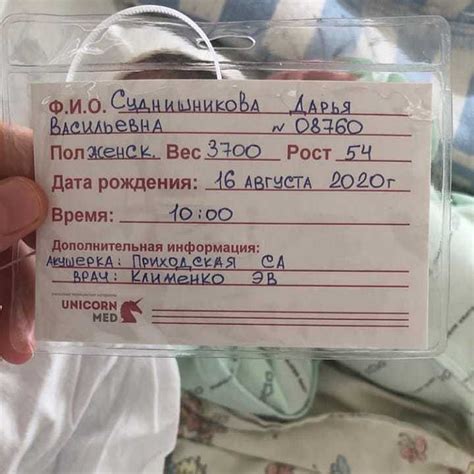 Ф.И.О. Суднишникова Дарья
Васильевна № 08760
Пол женск. Вес 3700 Рост 54
Дата рождения: 16 августа 2020г
Время: 10:00
Дополнительная информация:
Акушерка: Приходская СА
Врач: Клименко ЭВ
UNICORN
MED